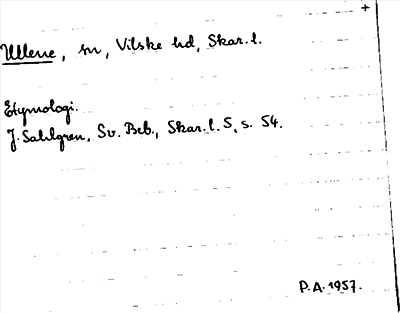 +
Ullene, sn, Vilske hd, Skar. l.
Etymologi.
J. Sahlgren, Sv. Beb., Skar. l. 5, s. 54.
P. A. 1957.